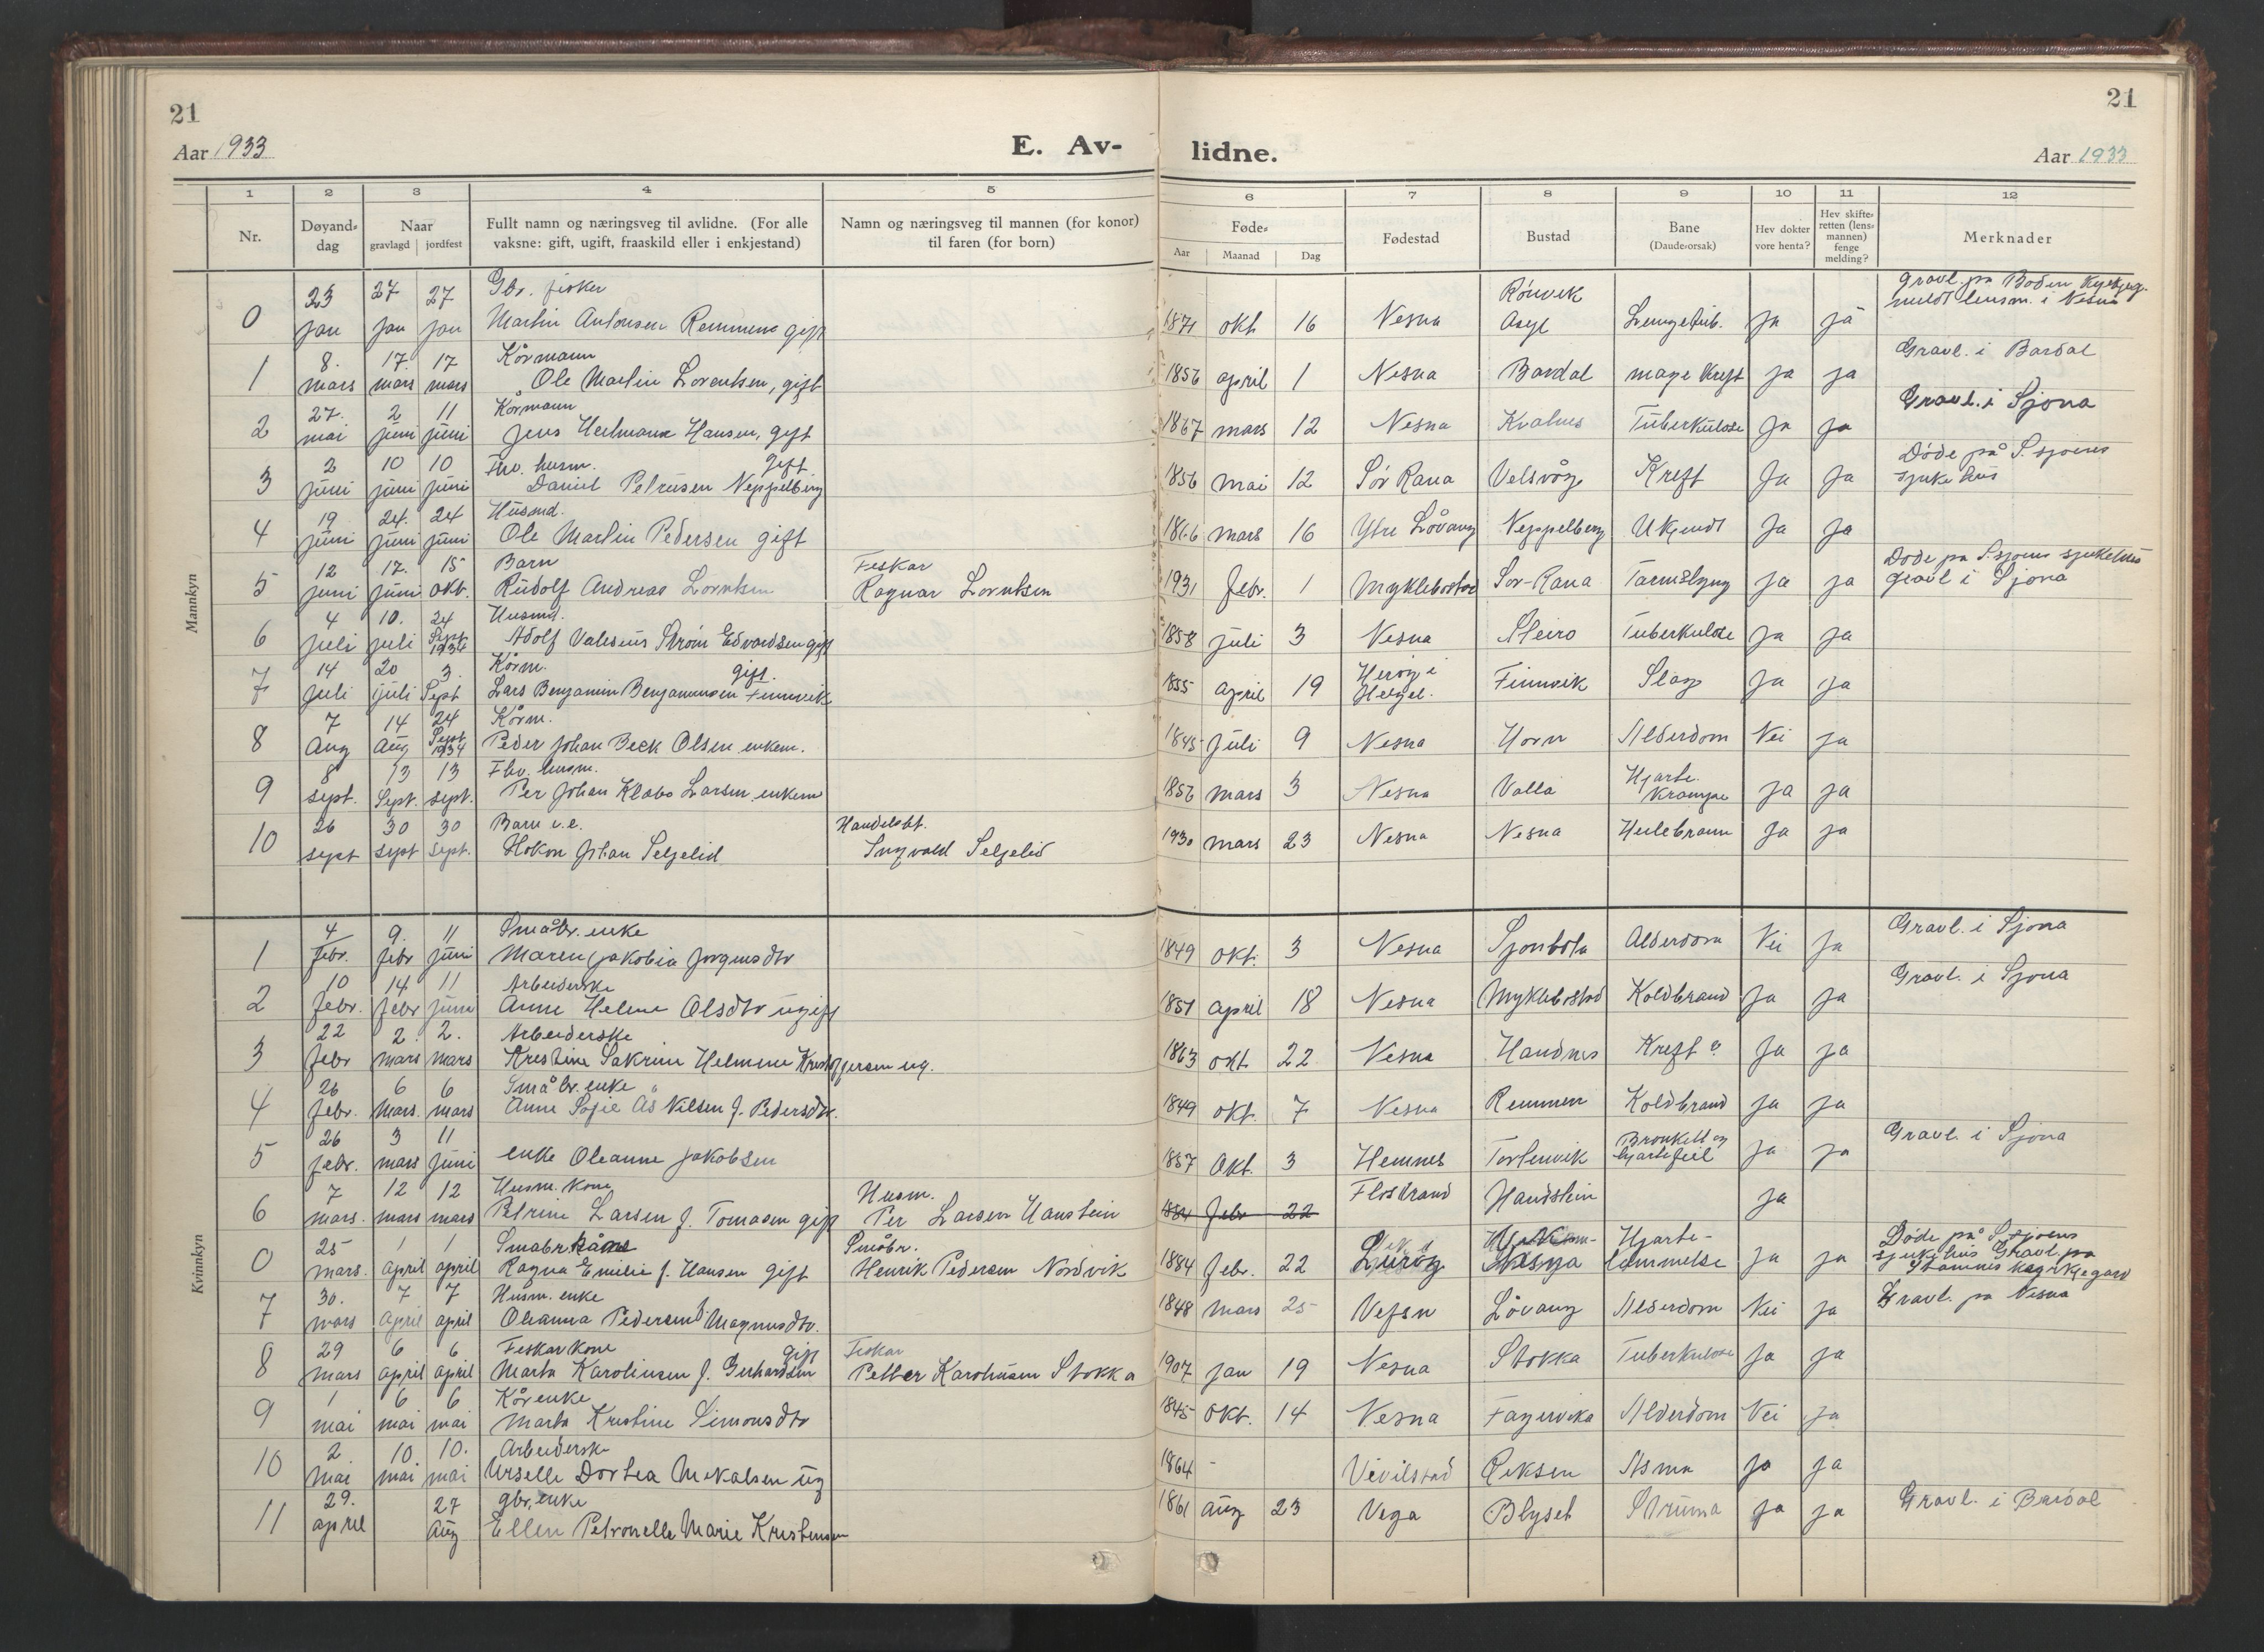 21
21
Aar 1933
E. Av-
lidne.
Aar 1933
1 2 3 4 5 6 7 8 9 10 11 12
Nr.
Døyand-dag
Naar
gravlagd | jordfest
Fullt namn og næringsveg til avlidne. (For alle
vaksne: gift, ugift, fraaskild eller i enkjestand)
Namn og næringsveg til mannen (for konor)
til faren (for born)
Føde-
Aar Maanad Dag
Fødestad
Bustad
Bane
(Daude-orsak)
Hev dokter
vore henta?
Hev skifte-
retten (lens-
mannen)
fenge
melding?
Merknader
Mannkyn
0 23 jan 27 jan 27 jan Gbr. fisker
Martin Antonsen Remmen gift 1871 okt 16 Nesna Rönvik Asyl ja ja gravl. på Bodin
meldt lensm. i Nesna
1 8. mars 17. mars 17 mars Kårmann
Ole Martin Lorentsen, gift 1856 april 1 Nesna Bardal mage kreft ja ja Gravl. i Bardal
2 27. mai 2 juni 11 juni Kårmann
Jens Hansen, gift 1867 mars 12 Nesna Tuberkulose ja ja Gravl. i Sjona
3 2 juni 10 juni 10 juni Fhv. husm. gift
Daniel Petrusen Neppelberg 1856 mai 12 Sör Rana Velsvåg Kreft ja ja Döde på S.sjoens
sjukehus
4 19 juni 24. juni 24 juni Husmd.
Ole Martin Pedersen gift 1866 mars 16 Ytre Lövang Neppelberg Ukjendt ja ja
5 12 juni 17. juni 15 okt. Barn Feskar
Rudolf Andreas Lorntsen Ragnar Lorntsen 1931 febr. 1 Myklebostad Sör-Rana Tarmslyng ja ja Döde på S.sjoens sjukehus
gravl i Sjona
6 4 juli 10. juli 24 Sept 1934 Husmd.
Adolf Valesius Ström Edvardsen gift 1858 juli 3 Nesna Steiro Tuberkulose ja ja
7 14 juli 20 juli 3. Sept Kårm. gift.
Lars Benjamin Benjaminsen Finnvik 1855 april 19 Heröy i Helgel. Finnvik Slag ja ja
8 7 Aug 14 Aug 24 Sept 1934 Kårm.
Peder Johan Beck Olsen enkem. 1845 juli 9 Nesna Horn Alderdom Nei ja
9 8 sept. 13 Sept. 13 sept. Fhv. husm.
Per Johan Klabo Larsen enkem 1856 mars 3 Nesna Valla Hjarte-
krampe ja ja
10 26 sept 30 sept 30 sept. Barn u.e. Handelsbt.
Hokon Johan Seljelid Ingvald Seljelid 1930 mars 23 Nesna Nesna ja ja
Kvinnkyn
1 4 febr. 9. febr 11 juni Småbr. enke
Maren Jakobia Jörgensdtr 1849 okt. 3 Nesna Sjonbotn Alderdom Nei ja Gravl. i Sjona
2 10 febr. 14 febr 11 juni Arbeiderske
Anne Helene Olsdtr ugift 1851 april 18 Nesna Myklebostad Koldbrand ja ja Gravl. i Sjona
3 22 febr 2. mars 2. mars Arbeiderske
Kristine Sakrine Helmine Kristoffersen ug. 1863 okt. 22 Nesna Handnes Kreft ? ja ja
4 26 febr. 6 mars. 6 mars Småbr. enke
Anne Sofie Ås Nilsen f. Pedersdtr. 1849 okt. 7 Nesna Remmen Koldbrand ja ja
5 26 febr. 3 mars 11 juni enke Oleanne Jakobsen 1857 Okt. 3 Hemnes Bronkitt og
hjartefeil ja ja Gravl. i Sjona
6 7 mars. 12 mars 12 mars Husm. kone Husm.
Petrine Larsen f. Tomasen gift Per Larsen Hanstein 1884 febr 22 Flostrand Handstein ja
0 25 mars. 1 april 1 april Småbr. kåne Småbr.
Ragna Emilie f. Hansen gift Henrik Pedersen Nordvik 1884 febr. 22 Luröy Nesna Hjarte-
lammelse ja ja Döde på S.sjoens
sjukehus Gravl. på
Stamnes kyrkjegard
7 30. mars 7 april 7 april Husm. enke
Oleanna Pedersen f. Magnusdtr. 1848 mars 25 Vefsn Lövang Alderdom Nei ja Gravl. på Nesna
8 29 mars 6 april 6 april Feskar kone gift Feskar
Marta Karolinsen f. Gerhardsen Petter Karolinsen Stokka 1907 jan 19 Nesna Stokka Tuberkulose ja ja
9 1 mai 6 mai 6 mai Kårenke
Marta Kristine Simonsdtr 1845 okt. 14 Nesna Fagervika Alderdom Nei ja
10 2 mai 10. mai 10. mai Arbeiderske
Urselle Dortea Mikalsen ug 1864 - Vivilstad Asma ja ja
11 29. april 27 aug gbr. enke
Ellen Petronelle Marie Kristensen 1861 aug 23 Vega Blyset Struma ja ja Gravl. i Bardal